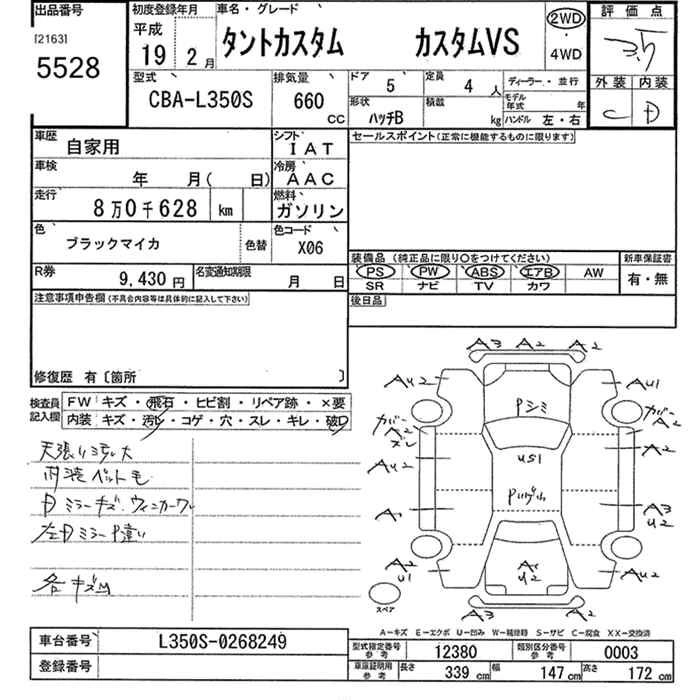 出品番号
[2163]
5528
初度登録年月
平成
19年 2月
車名・グレード
タントカスタム カスタムVS
2WD
・
4WD
評価点
3.5
外装 内装
C D
型式
CBA-L350S
排気量
660
CC
ドア 5
定員 4 人
形状 ハッチB
積載 kg
ディーラー・並行
モデル年式 年
ハンドル 左・右
車歴 自家用
シフト IAT
車検 年 月( 日)
冷房 AAC
走行 8万0千628 km
燃料 ガソリン
色 ブラックマイカ 色替
色コード X06
R券 9,430円
名変通知期限 月 日
セールスポイント(正常に機能するものに限ります)
装備品 (純正品に限り○をつけてください)
PS PW ABS エアB AW
SR ナビ TV カワ
新車保証書
有・無
後日品
注意事項申告欄(不具合内容等は具体的に記入して下さい)
修復歴 有〔箇所 〕
検査員記入欄
FW キズ・飛石・ヒビ割・リペア跡・×要
内装 キズ・汚レ・コゲ・穴・スレ・キレ・破レ
内装ペット毛
ミラーキズ.ウィンカーワレ
各キズM
A3 A2 A2
AU2 AU1
Pシミ
カバー A2
カバー A2
US1
A2
AU2
A1
A3 U2
A2 U1
A1 U2
AU2
A3 A2
スペア
A-キズ E-エクボ U-凹み W-補修跡 S-サビ C-腐食 XX-交換済
車台番号 L350S-0268249
登録番号
型式指定番号 参考 12380
類別区分番号 参考 0003
車庫証明用 参考 長さ 339 cm 幅 147 cm 高さ 172 cm